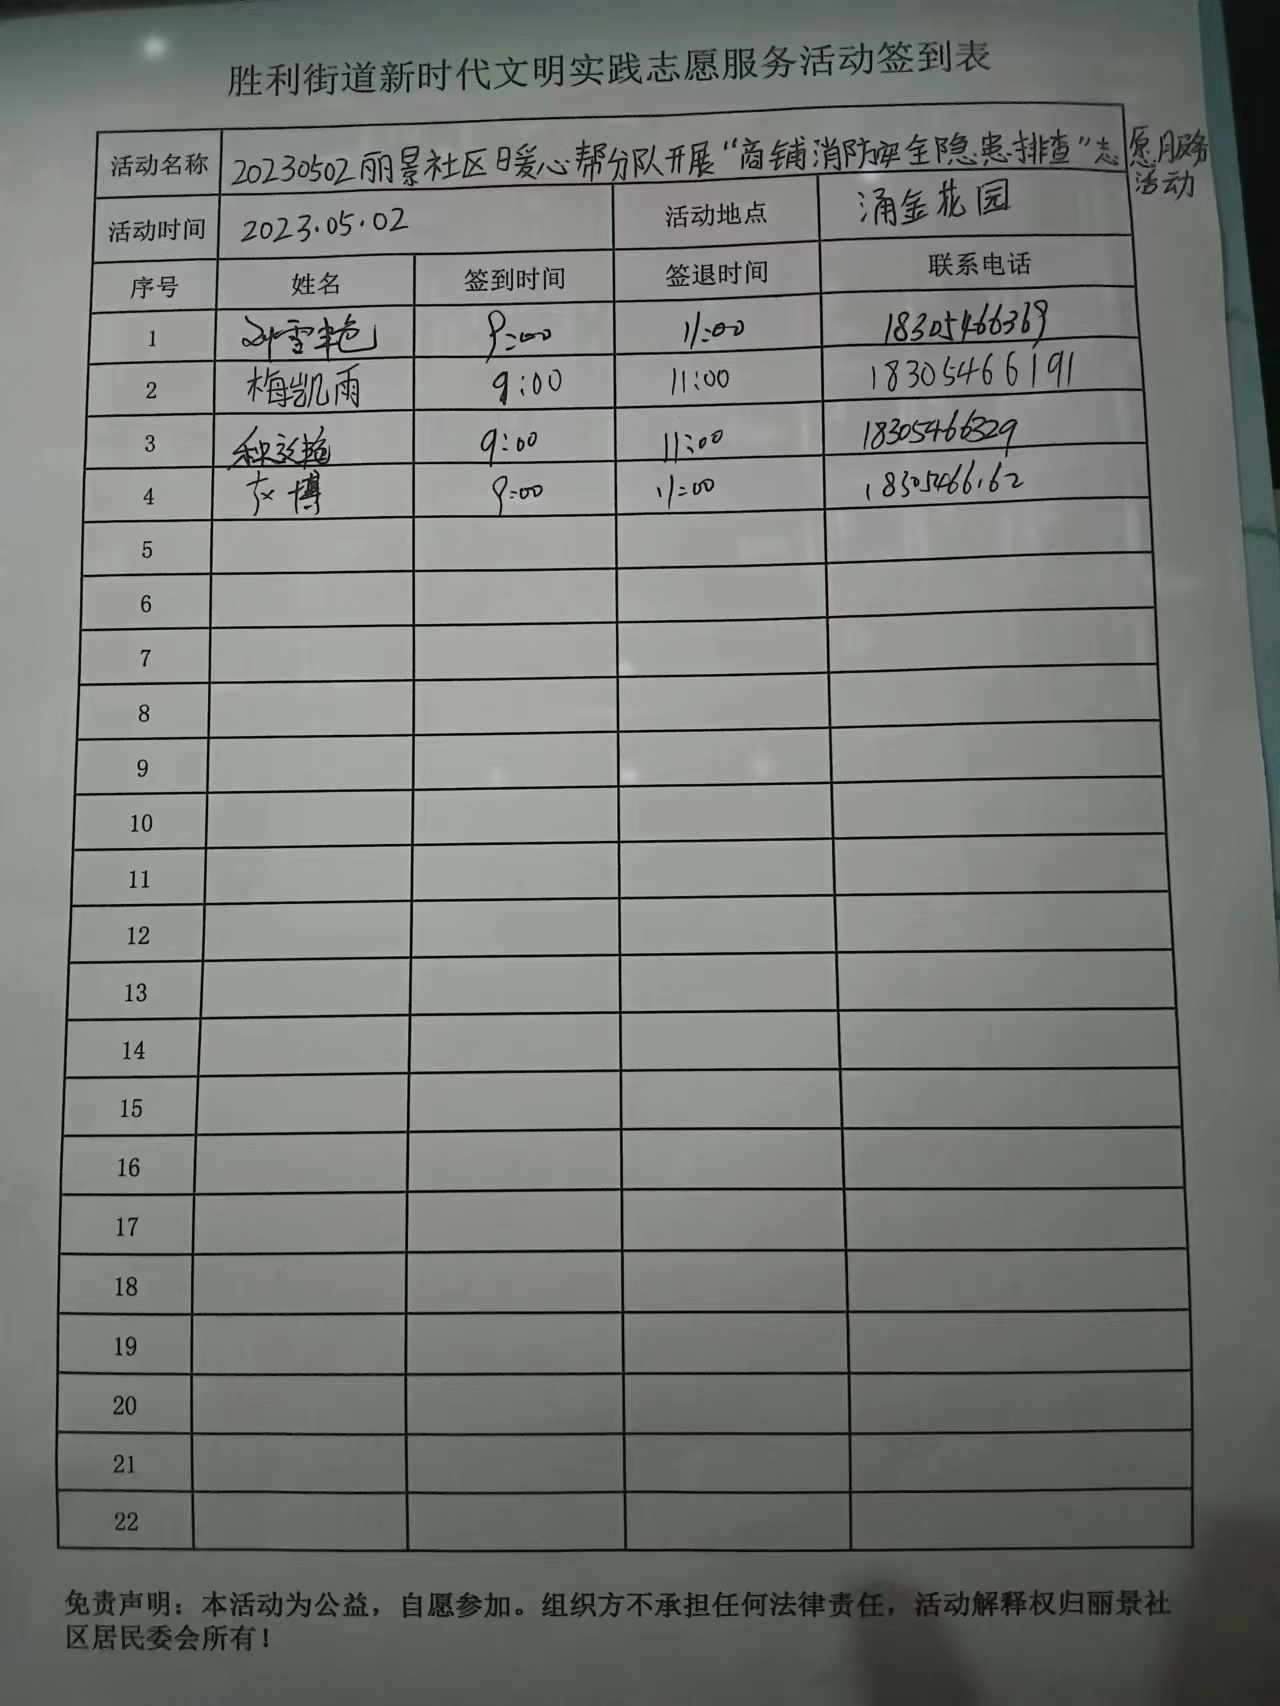 胜利街道新时代文明实践志愿服务活动签到表
活动名称 20230502丽景社区暖心帮分队开展“商铺消防安全隐患排查”志愿服务
活动
活动时间 2023.05.02 活动地点 涌金花园
序号 姓名 签到时间 签退时间 联系电话
1 刘雪艳 9:00 11:00 18305466369
2 梅凯雨 9:00 11:00 18305466191
3 9:00 11:00 18305466329
4 博 9:00 11:00 18305466162
5
6
7
8
9
10
11
12
13
14
15
16
17
18
19
20
21
22
免责声明：本活动为公益，自愿参加。组织方不承担任何法律责任，活动解释权归丽景社
区居民委会所有！